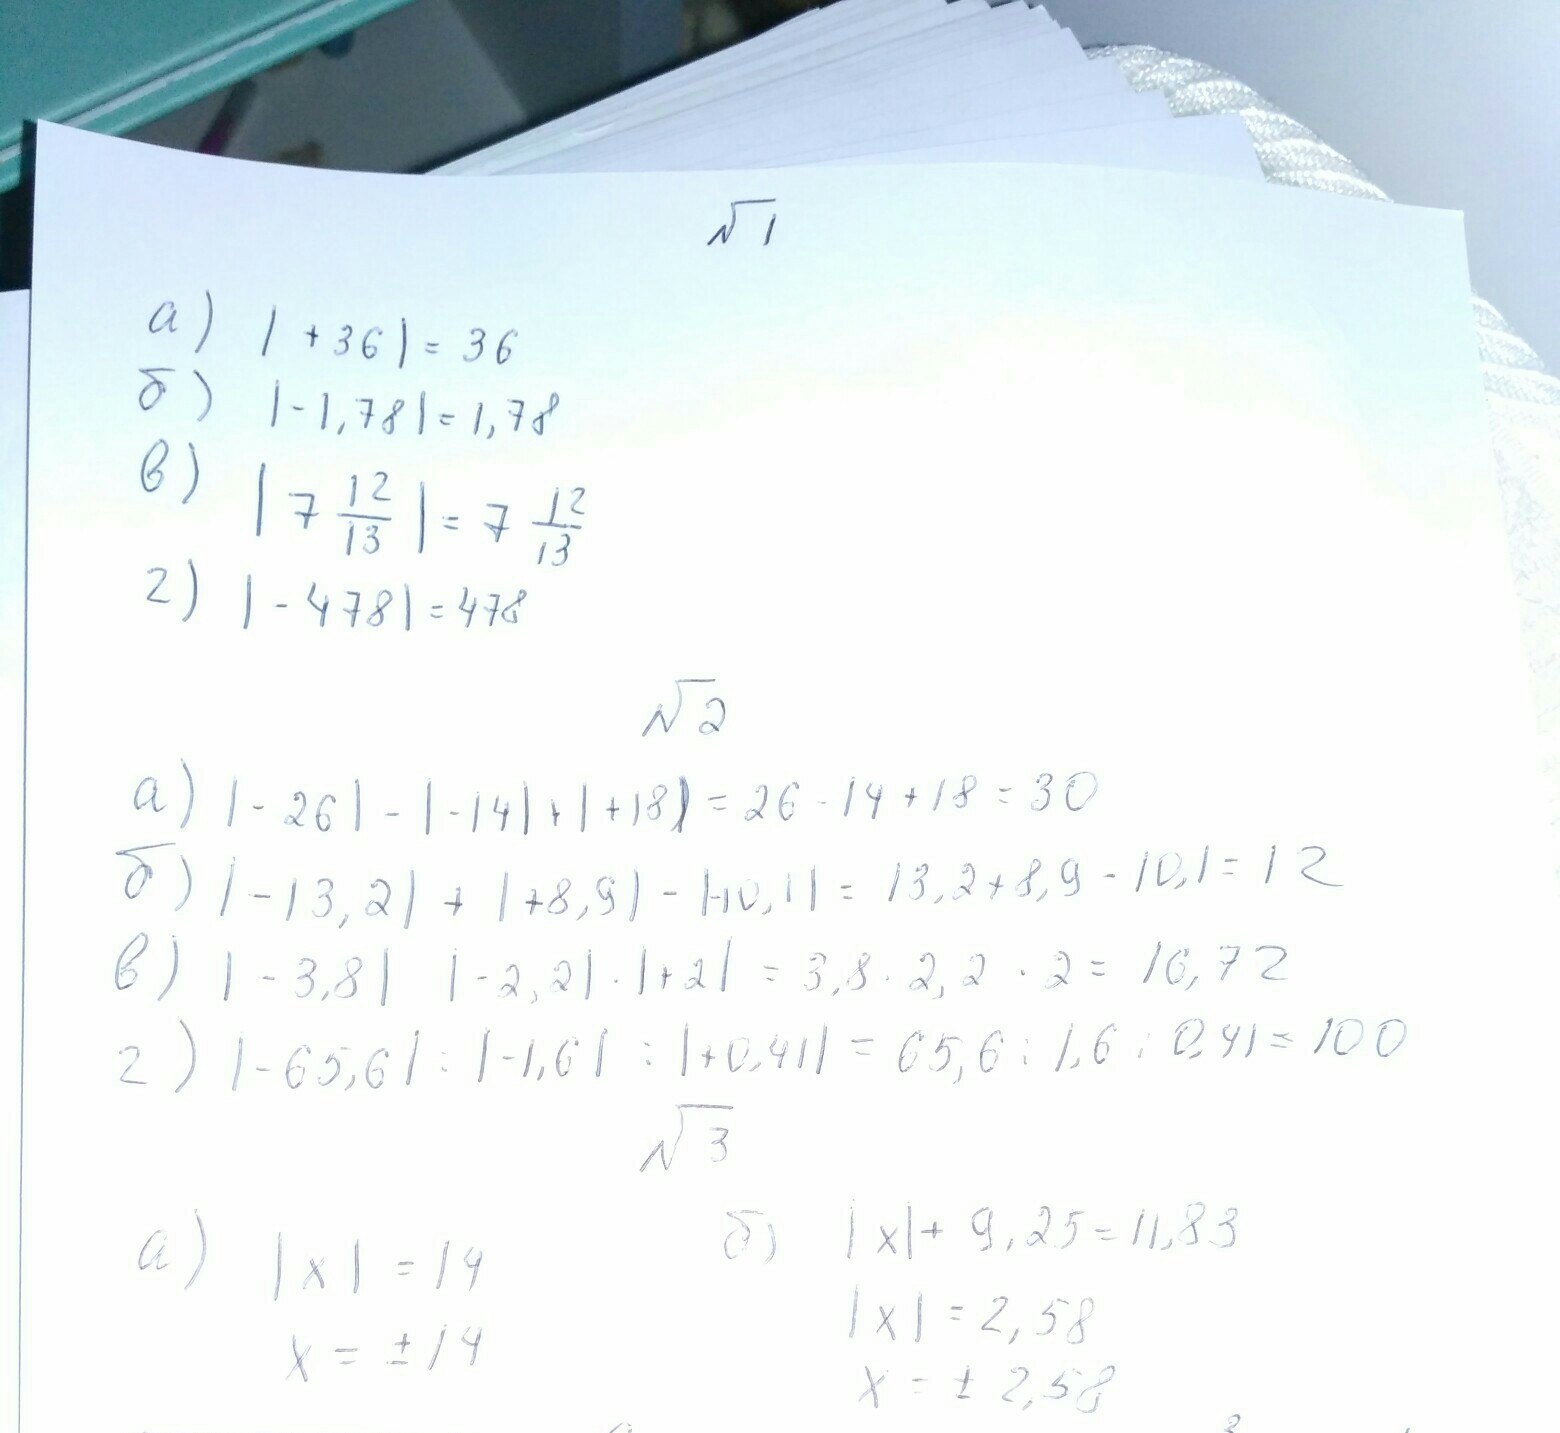 №1
а) |+36|= 36
б) |-1,78|= 1,78
в) |7 12/13|= 7 12/13
г) |-478|= 478
№2
а) |-26| - |-14|+|+18|= 26-14+18=30
б) |-13,2| + |+8,9| - |-10,1|= 13,2+8,9-10,1=12
в) |-3,8| |-2,2|·|+2| = 3,8·2,2·2= 16,72
г) |-65,6| : |-1,6| : |+0,41| = 65,6:1,6:0,41=100
№3
а) |x| = 14
x = ±14
б) |x|+ 9,25=11,83
|x| = 2,58
x = ± 2,58